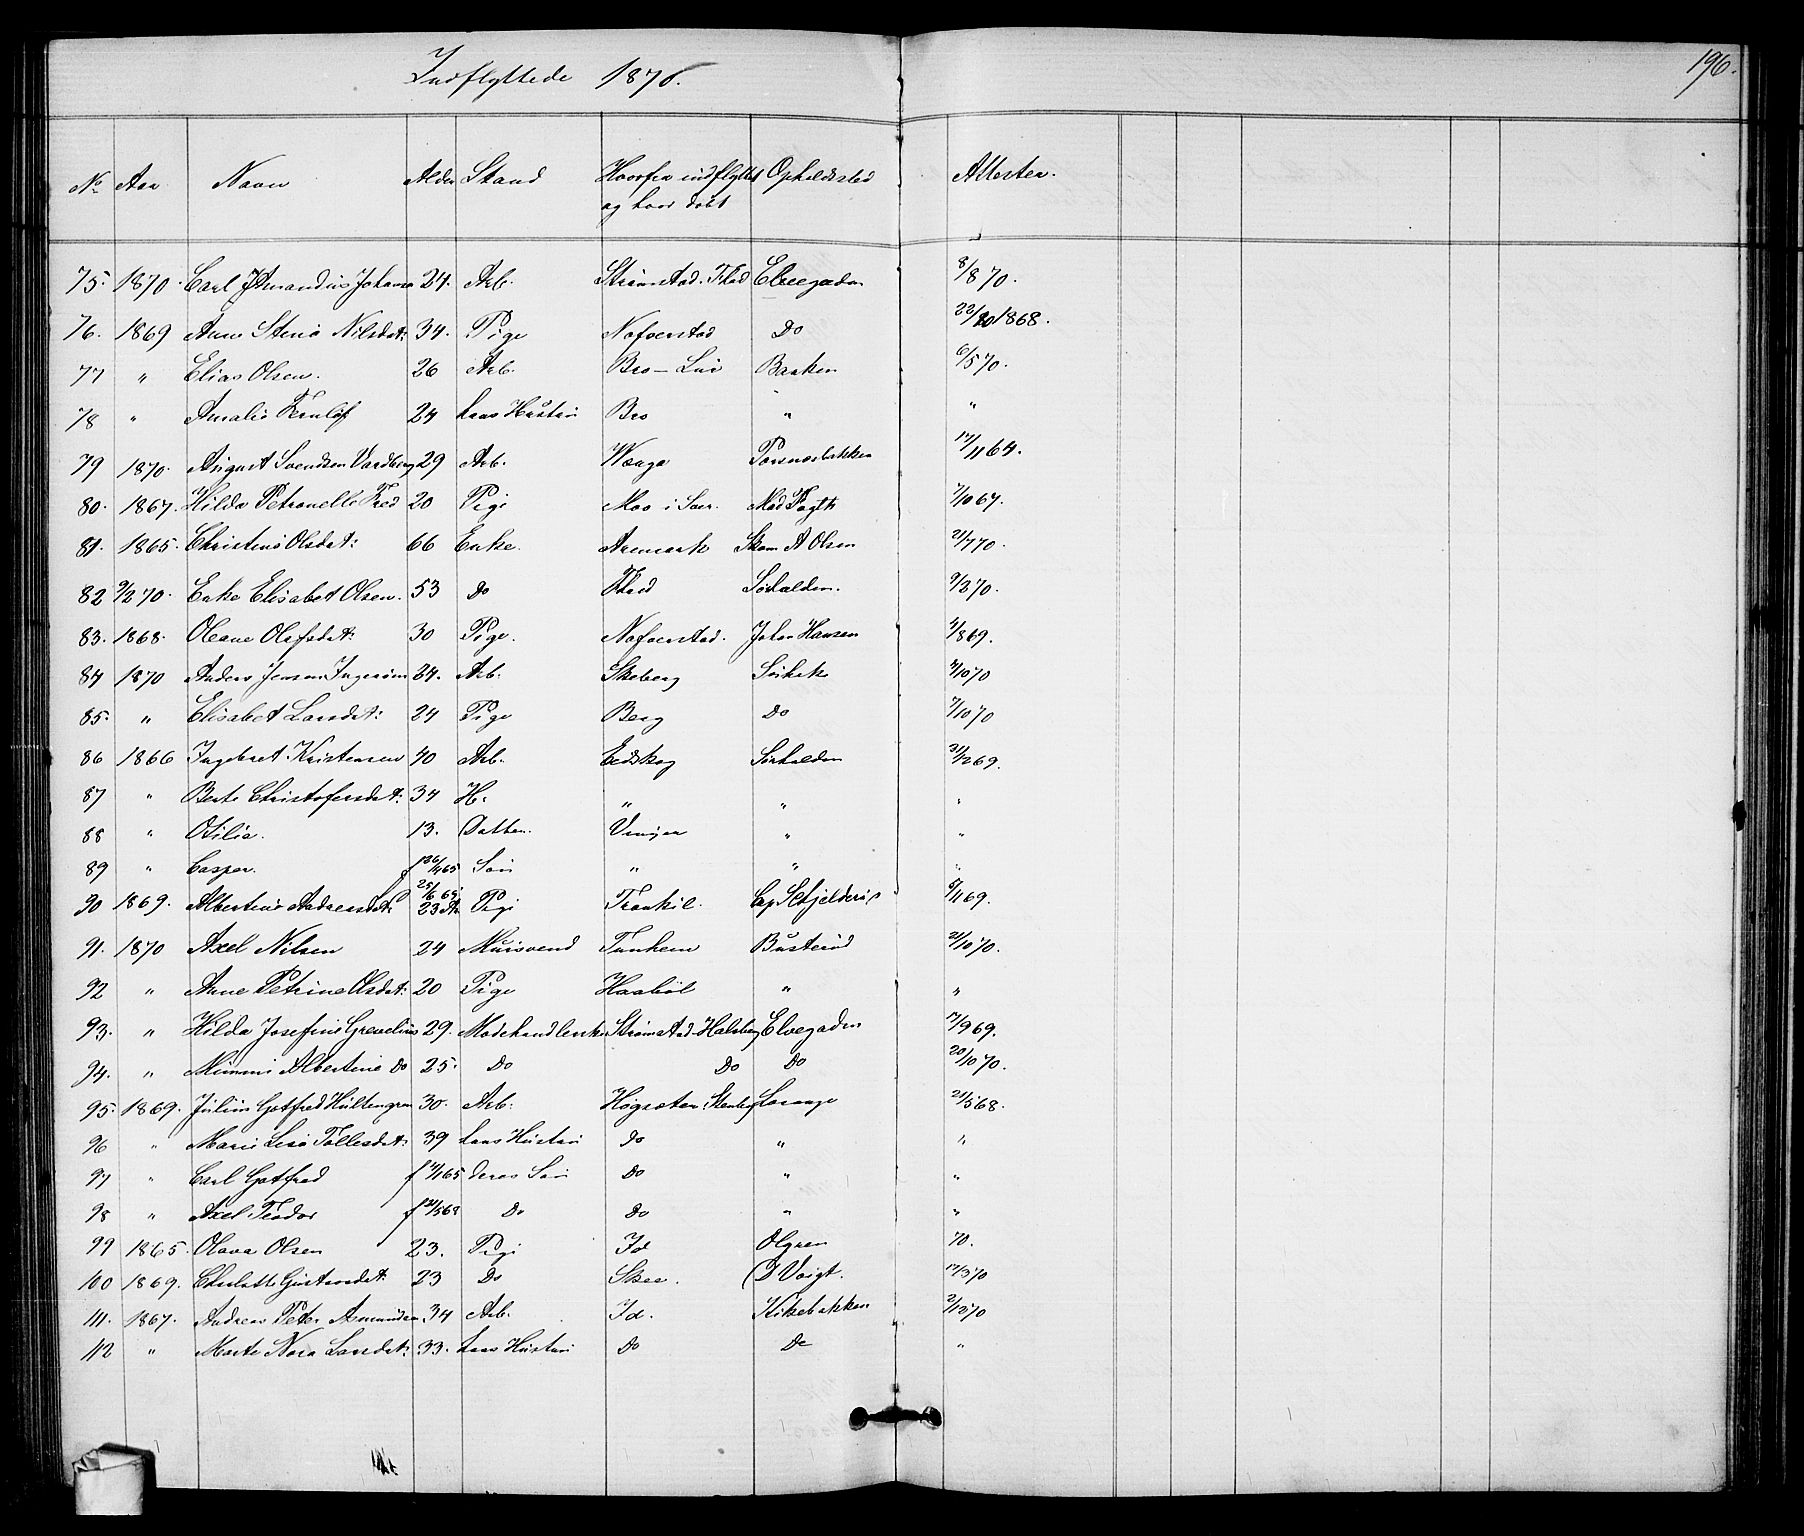 Indflyttede 1870.
196.
No. Aar Navn Alder Stand Hvorfra indflyttet og hvor døbt Opholdssted Attester.
75. 1870. Carl Amandus Johans 24. Arb. Strømstad. Elvegaden 8/8 70.
76. 1869 Anne Stine Nilsdat: 34. Pige Nafverstad Do 22/10 1868.
77 " Elias Olsen. 26 Arb. Bro - Bakken 6/5 70.
78 " Amalie 24 hans Hustru Bro " "
79 1870. August Svendsen Vardberg 29 Arb. Wænga Torsnæsbakken 17/11 64.
80. 1867. Hilda Petronelle Fred 20 Pige Mos i Sver. Mad Fogth 7/10 67.
81. 1865. Christine Olsdat: 66 Enke. Aremark Skom A Olsen 21/7 70.
82 9/2 70. Enke Elisabet Olsen. 53 Do Sørhalden. 9/3 70.
83. 1868. Oleane Olafsdat: 30 Pige. Nafverstad. Johan Hansen 4/8 69.
84 1870 Anders Jensen 24. Arb. Skeberg 3/10 70
85. " Elisabet Larsdat: 24 Pige Berg Do 7/10 70
86 1866 Ingebret Kristensen 40 Arb. Eidskog Sørhalden 31/12 69.
87 " Berte Christofersdat: 34 H. " " "
88 " Otilia. 13. Datter. Vinger " "
89 " Casper. f 26/11 65 Søn " " "
90 1869. Albertine Andreasdat: 25/6 65 23 Ar Pige Trankil. 5/11 69.
91. 1870 Axel Nilsen 24 Muursvend Tunhem Busterød 21/10 70.
92 " Anne Petrine Olsdat: 20 Pige Haabøl " "
93. " Hilda Josefine Grevelius 29. Modehandlerske Strømstad Elvegaden 17/9 69.
94. " Mimmi Albertine Do 25. Do Do Do 20/10 70.
95. 1869. Julius Gotfred Hultengren 30. Arb: Høgsæter: Sørange 21/5 68.
96 " Marie Lesø Tollesdat: 39 hans Hustru Do " "
97 " Carl Gotfred f 65 deres Søn Do " "
98 " Axel Teodor f 21/5 68 Do Do " "
99 1865. Olava Olsen 23. Pige Id Olgren 70.
100 1869. Charlotte Gustavsdat 23 Do Skee. Voigt. 17/3 70
111. 1867. Andreas Peter Asmundsen 34 Arb. Id. Kikebakken 2/12 70
112 " Marte Nora Larsdat: 33. hans Hustru Do Do "